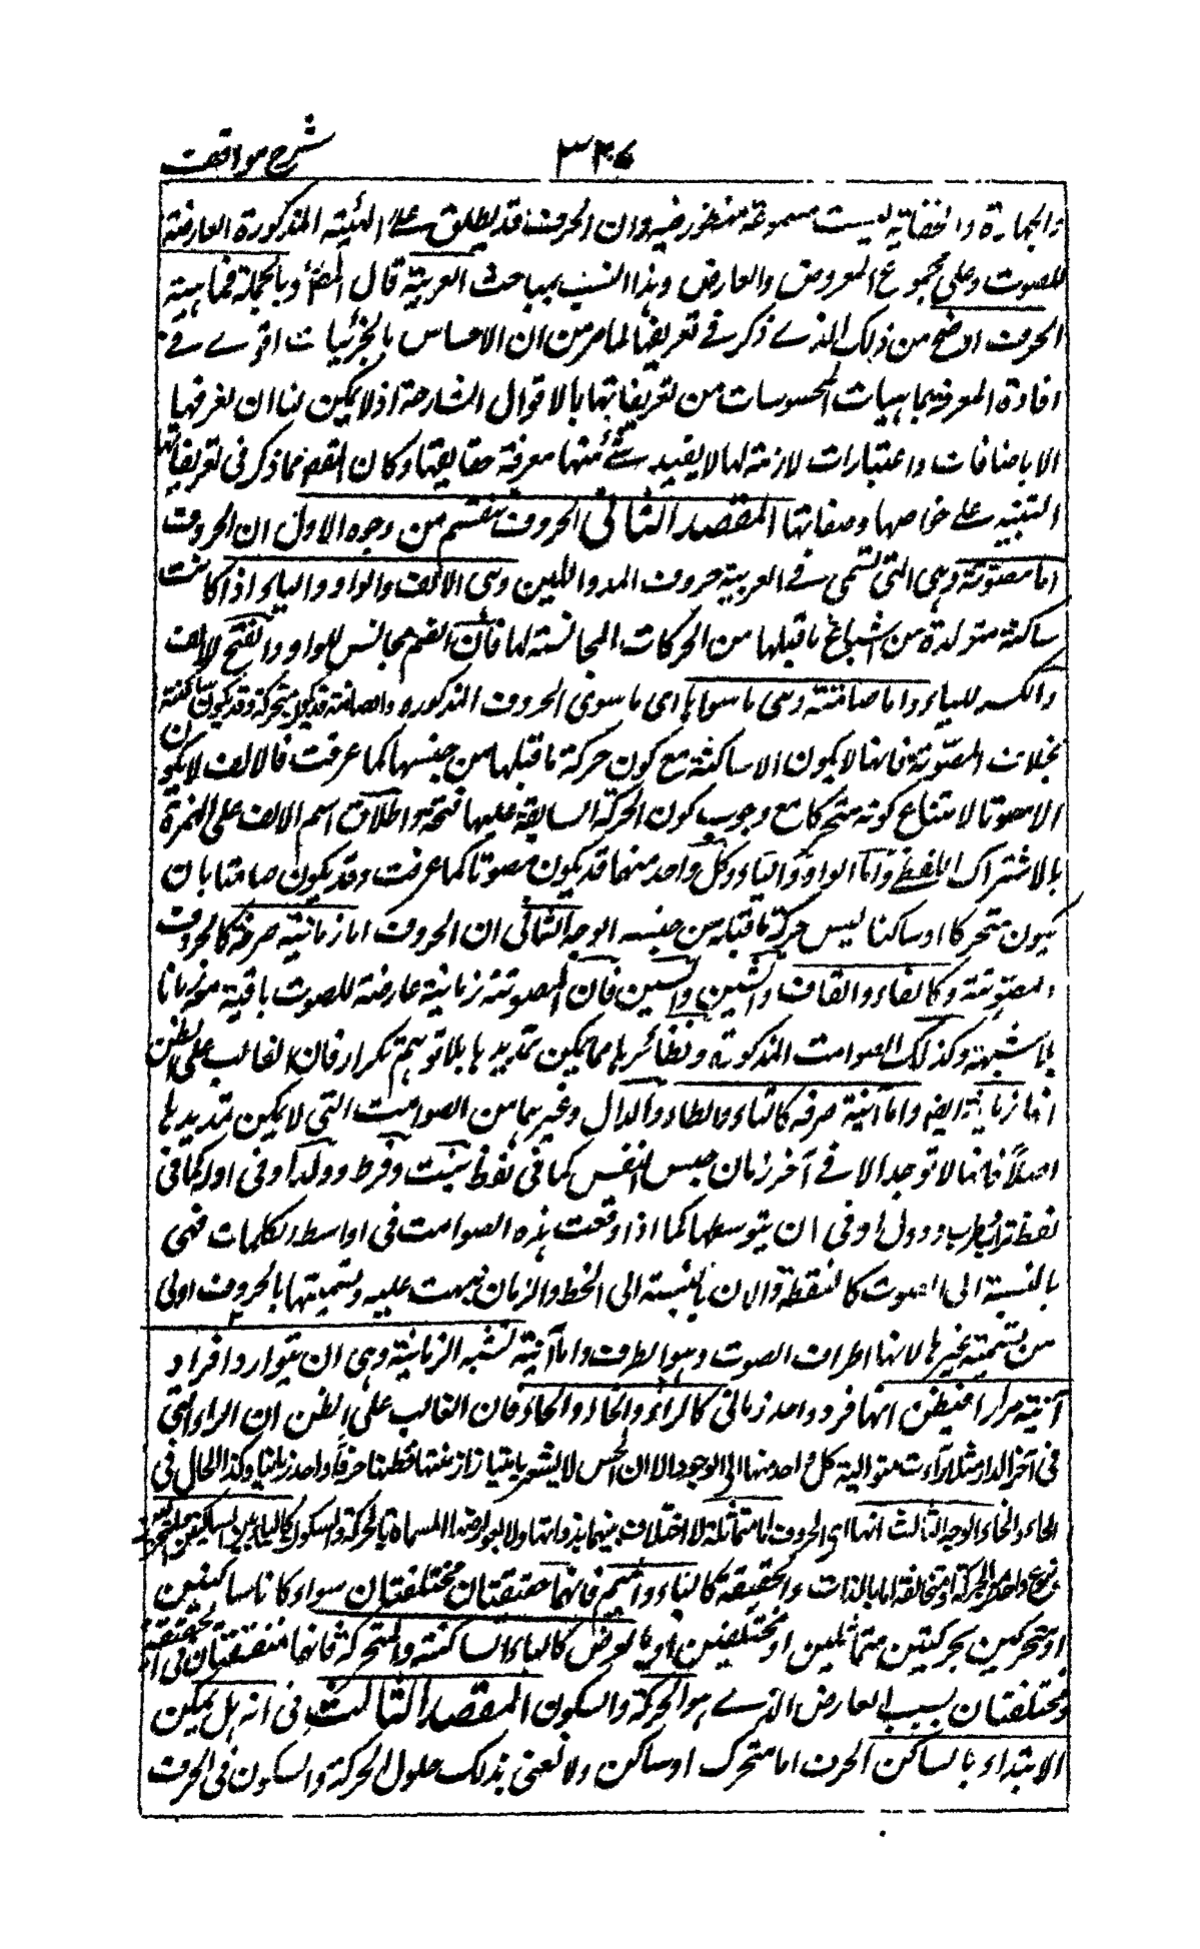 شرح مواقف
والجهارة والخفاية ليست مسموعة فمنظور فيه وان الحروف قد يطلق على الهيئة المذكورة العارضة
للصوت وعلى مجموع المعروض والعارض وهذا انسب بمباحث العربية قال المصنف وبالجملة فماهية
الحروف اوضح من ذلك الذي ذكر في تعريفها لما مر من ان الاحساس بالجزئيات اقوى في
افادة المعرفة بماهيات المحسوسات من تعريفاتها بالاقوال الشارحة اذ لا يمكن لنا ان نعرفها
الا باضافات واعتبارات لازمة لها لا يفيد شئ منها معرفة حقايقها وكان القصد مما ذكر فى تعريفاتها
التنبيه على خواصها وصفاتها المقصد الثانى الحروف تنقسم من وجوه الاول ان الحروف
اما مصوتة وهى التى تسمى فى العربية حروف المد واللين وهى الالف والواو والياء اذا كانت
ساكنة متولدة من اشباع ما قبلها من الحركات المجانسة لها فان الضم مجانس للواو والفتح للالف
والكسر للياء واما صامتة وهى ما سواها اى ما سوى الحروف المذكورة والصامتة قد يكون متحركة وقد يكون ساكنة
بخلاف المصوتة فانها لا يكون الا ساكنة مع كون حركة ما قبلها من جنسها كما عرفت فالالف لا يكون
الا مصوتا لامتناع كونه متحركا مع وجوب كون الحركة السابقة عليها فتحة واطلاق اسم الالف على الهمزة
بالاشتراك اللفظى واما الواو والياء وكل واحد منهما قد يكون مصوتا كما عرفت وقد يكون صامتا بان
يكون متحركا او ساكنا ليس حركة ما قبله من جنسه الوجه الثانى ان الحروف اما زمانية صرفة كالحروف
المصوتة وكالفاء والقاف والشين والسين فان المصوتة زمانية عارضة للصوت باقية معه زمانا
بلا شبهة وكذلك الصوامت المذكورة ونظائرها مما يمكن تمديدها بلا توهم تكرار فان الغالب على الظن
انها زمانية ايضا واما آنية صرفه كالتاء والطاء والدال وغيرها من الصوامت التى لا يمكن تمديدها
اصلا فانها لا توجد الا فى آخر زمان حبس النفس كما فى لفظ بيت وفرط وولد او فى اوله كما فى
لفظ تراب وطرب ودول او فى ان يتوسطها كما اذا وقعت هذه الصوامت فى اواسط الكلمات فهى
بالنسبة الى الصوت كالنقطة والان بالنسبة الى الخط والزمان نبهت عليه وتسميتها بالحروف اولى
من تسمية غيرها لانها اطراف الصوت وهو الطرف واما آنية تشبه الزمانية وهى ان يتوارد افراد
آنية مرارا فيظن انها فرد واحد زمانى كالراء والخاء والحاء فان الغالب على الظن ان الراء التى
فى آخر الدار مثلا راءات متوالية كل واحد منها آنى الوجود الا ان الحس لا يشعر بامتياز ازمنتها فظنها حرفا واحدا زمانيا وكذا الحال فى
الحاء والخاء الوجه الثالث انها اى الحروف اما متماثلة لا اختلاف بينها بذواتها ولا بعوارضها المسماة بالحركة والسكون كالبائين الساكنين
او المتحركين بنوع واحد من الحركة او متخالفة اما بالذات والحقيقة كالباء والميم فانهما حقيقتان مختلفتان سواء كانا ساكنين
او متحركين بحركتين متماثلتين او مختلفتين او بالعرض كالباء الساكنة والمتحركة فانهما متفقتان فى الحقيقة
ومختلفتان بسبب العارض الذى هو الحركة والسكون المقصد الثالث فى انه هل يمكن
الابتداء بالساكن الحرف اما متحرك او ساكن ولا نعنى بذلك حلول الحركة والسكون فى الحرف